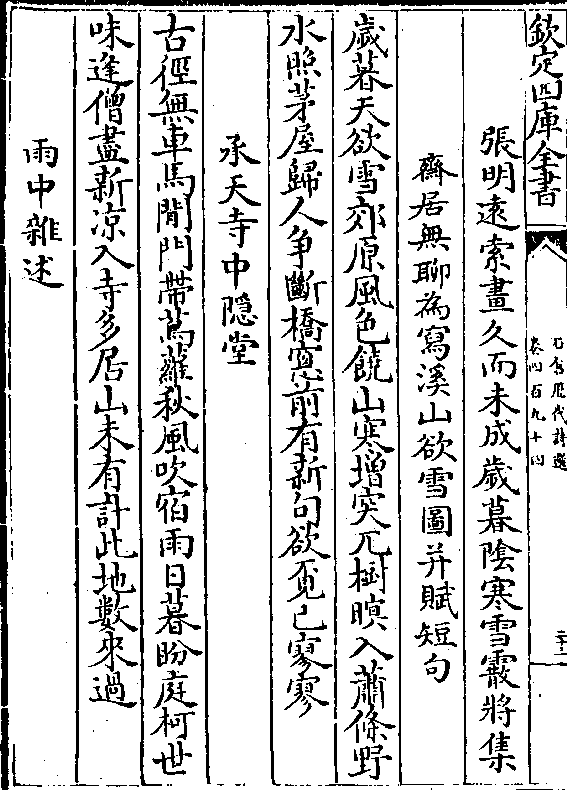 欽定四庫全書
石倉歷代詩選
卷四百九十四
張明遠索畫久而未成歲暮陰寒雪霰將集
齋居無聊為寫溪山欲雪圖并賦短句
歲暮天欲雪郊原風色饒山寒增突兀樹暝入蕭條野
水照茅屋歸人争斷橋窓前有新句欲覓已寥寥
承天寺中隠堂
古徑無車馬閒門帶蔦蘿秋風吹宿雨日暮盼庭柯世
味逢僧盡新凉入寺多居山未有計此地數來過
雨中雜述